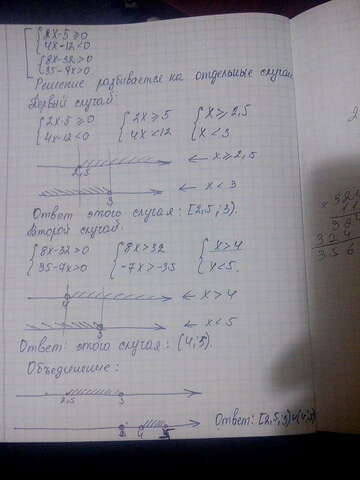 2x-5≥0
4x-12<0
8x-32>0
35-7x>0
Решение разбивается на отдельные случаи
Первый случай:
2x-5≥0 2x≥5 x≥2,5
4x-12<0 4x<12 x<3
2,5 ← x≥2,5
3 ← x<3
Ответ этого случая: [2,5;3).
Второй случай:
8x-32>0 8x>32 x>4
35-7x>0 -7x>-35 x<5.
4 ← x>4
5 ← x<5
Ответ: этого случая: (4;5).
Объединение:
2,5 3
3 4 5 Ответ: [2,5;3)∪(4;5)